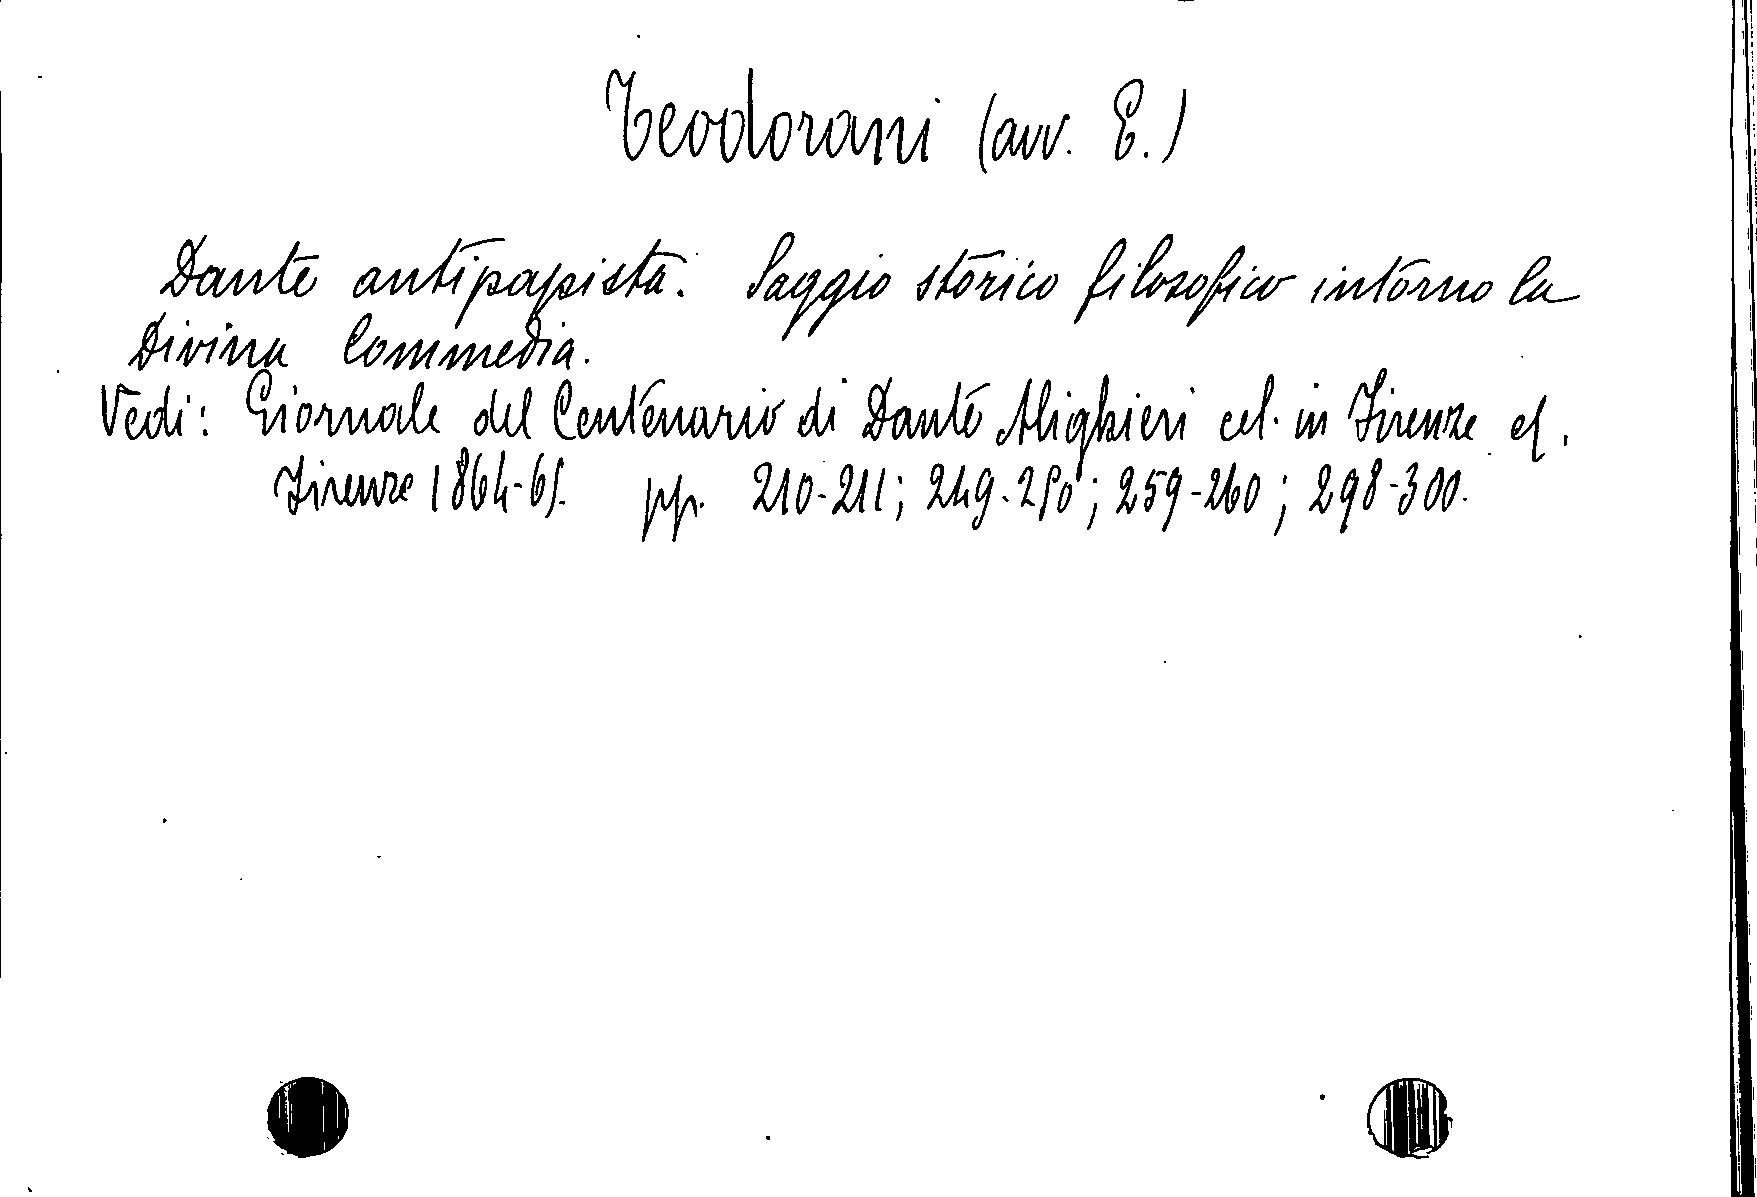 Teodorani (avv. E.)
Dante antipapista. Saggio storico filosofico intorno la
Divina Commedia.
Vedi: Giornale del Centenario di Dante Alighieri cel. in Firenze
Firenze 1864-65. pp. 210-211; 249-250; 259-260; 298-300.